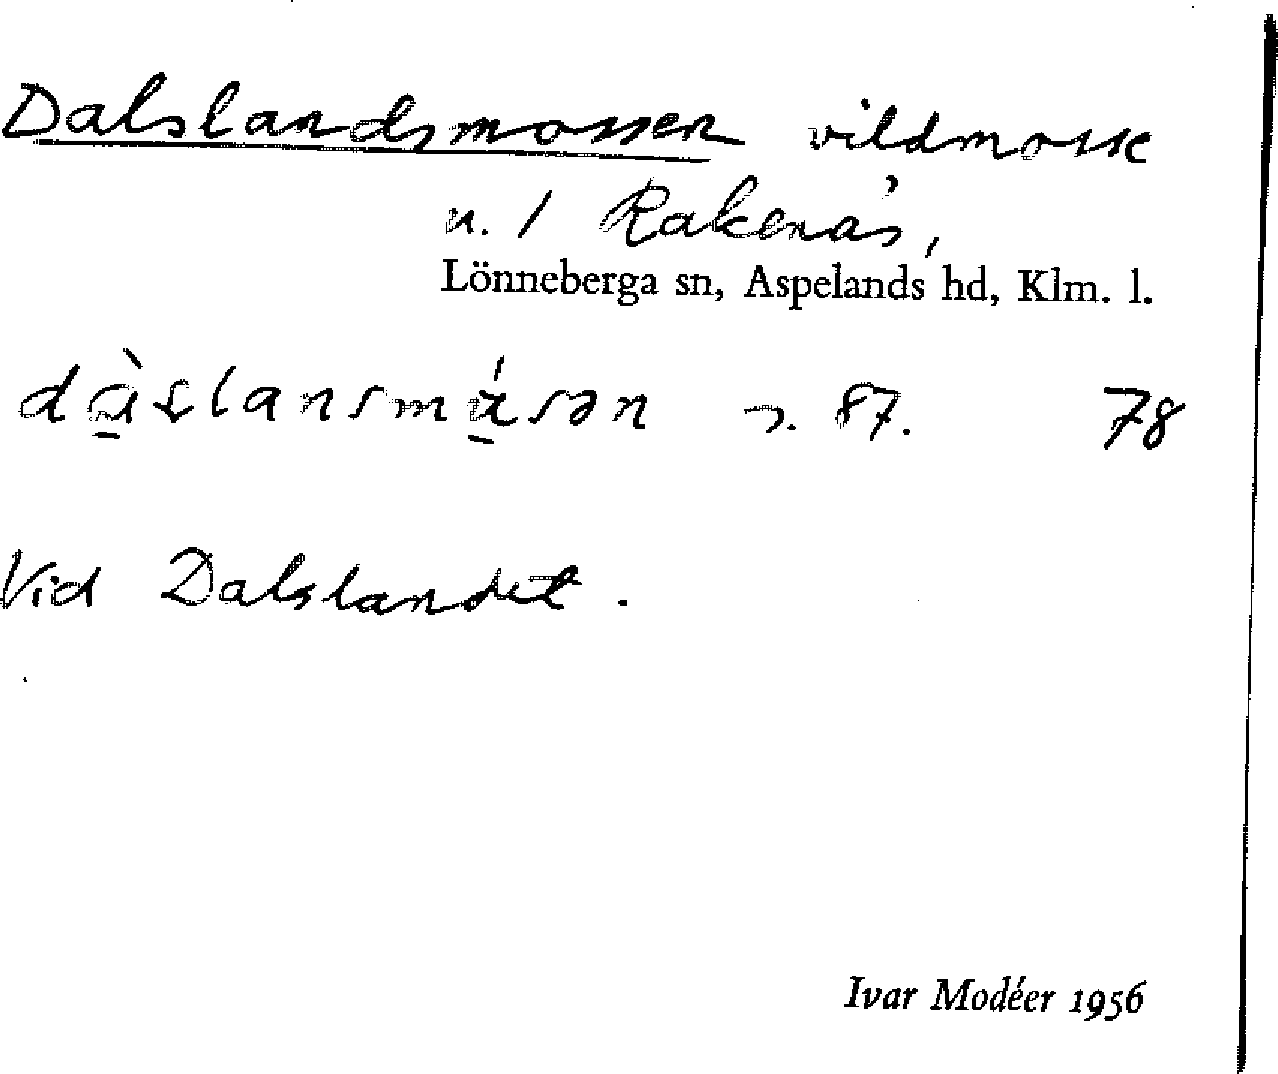 Dalslandsmossen vildmosse
u. / Rakenäs,
Lönneberga sn, Aspelands hd, Klm. l.
87. 78
Vid Dalslandet.
Ivar Modéer 1956